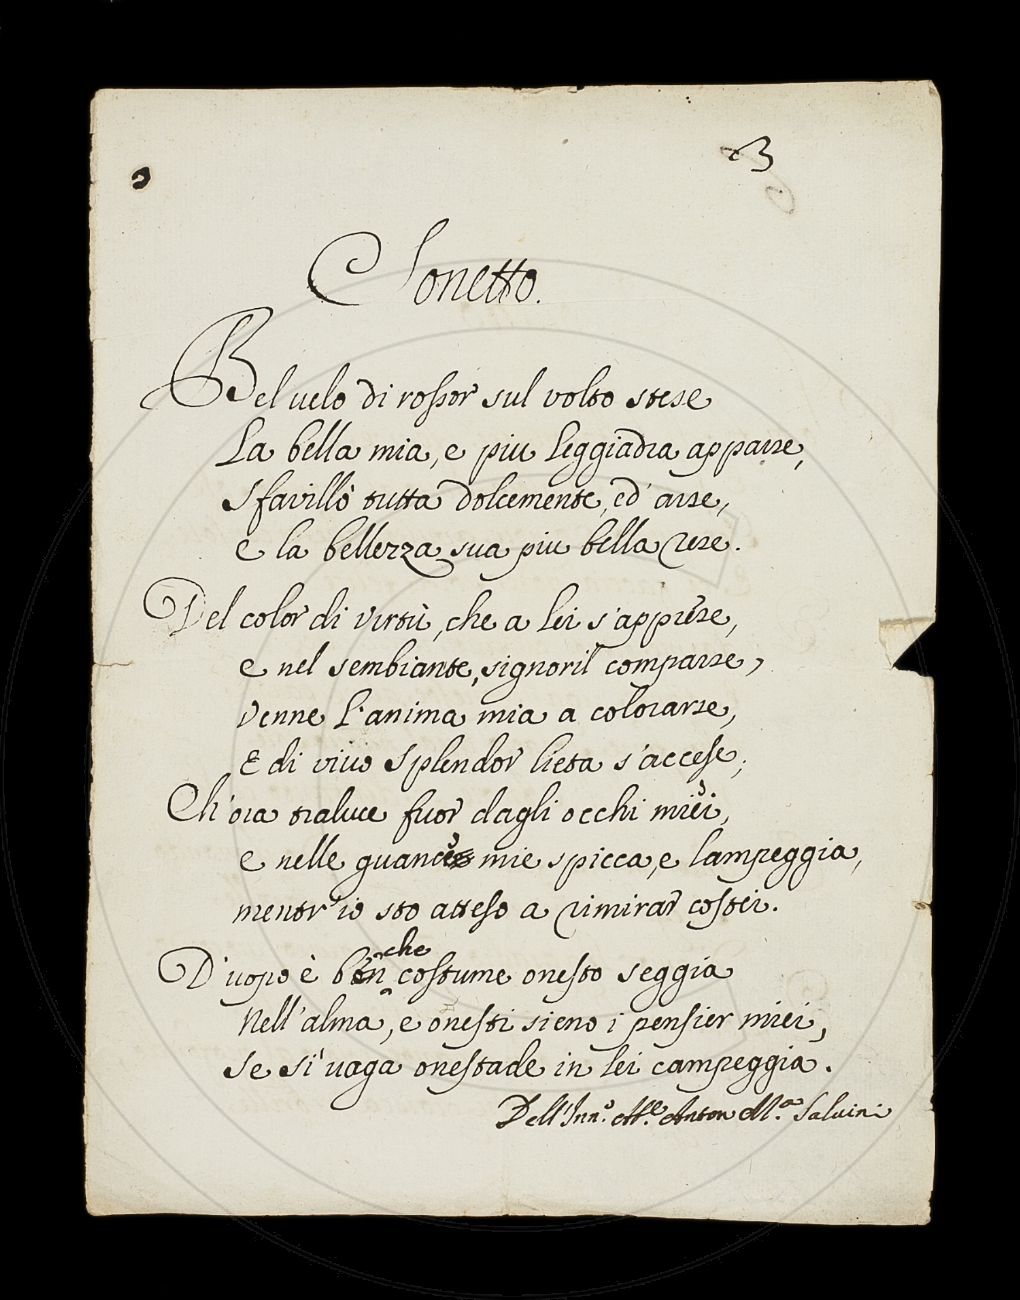 3
Sonetto.
Bel uelo di rossor sul volto stese
La bella mia, e piu leggiadra apparse,
Sfavillò tutta dolcemente, ed' arse,
e la bellezza sua piu bella rese.
Del color di virtù, che a lei s'apprese,
e nel sembiante, signoril comparse,
Venne l'anima mia a colorarse,
E di vivo splendor lieta s'accese;
Ch'ora traluce fuor dagli occhi miei,
e nelle guance mie spicca, e lampeggia,
mentr'io sto atteso a rimirar costei.
D'uopo è ben che costume onesto seggia
Nell'alma, e onesti sieno i pensier miei,
se sì uaga onestade in lei campeggia.
Dell' Anton M.a Saluini